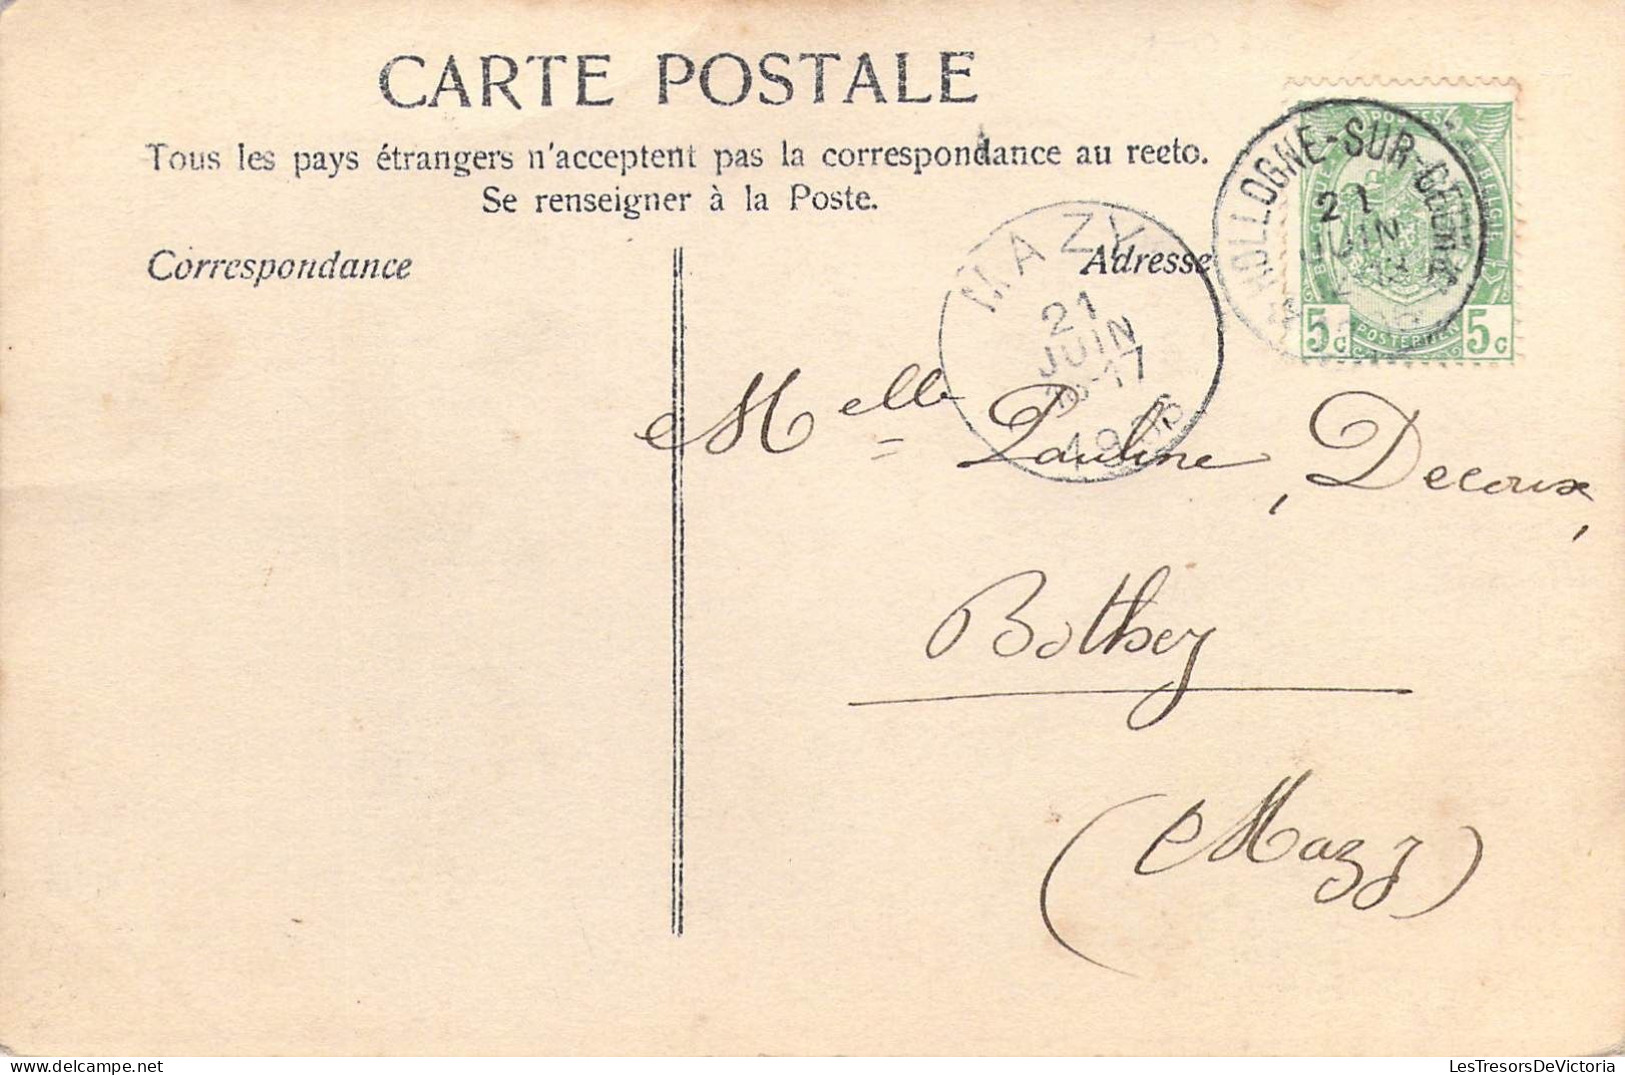 CARTE POSTALE
Tous les pays étrangers n'acceptent pas la correspondance au recto.
Se renseigner à la Poste.
Correspondance
Adresse
HOLLOGNE-SUR-GEER
21
JUIN
POSTES
BELGIQUE
5c
5c
MAZY
21
JUIN
16-17
Melle Pauline, Decoux,
Bothey
(Mazy)
LesTresorsDeVictoria